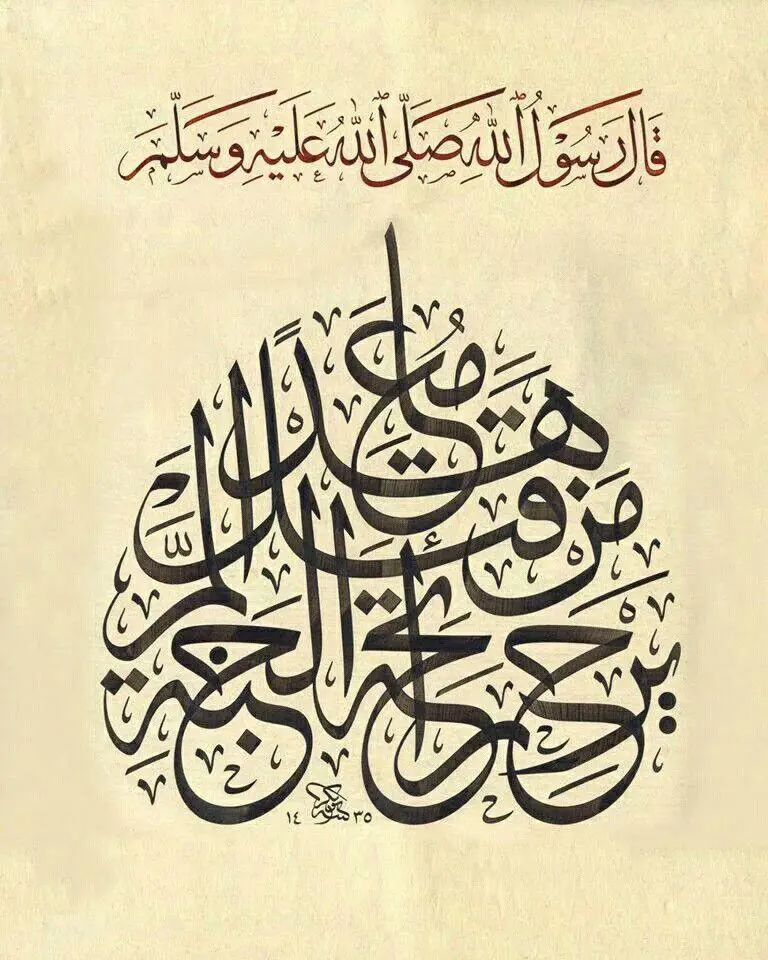 قَالَ رَسُوْلُ اللهِ صَلَّى اللهُ عَلَيْهِ وَسَلَّمَ
مَنْ قَتَلَ مُعَاهَدًا لَمْ يَرَحْ رَائِحَةَ الْجَنَّةِ
١٤٣٥